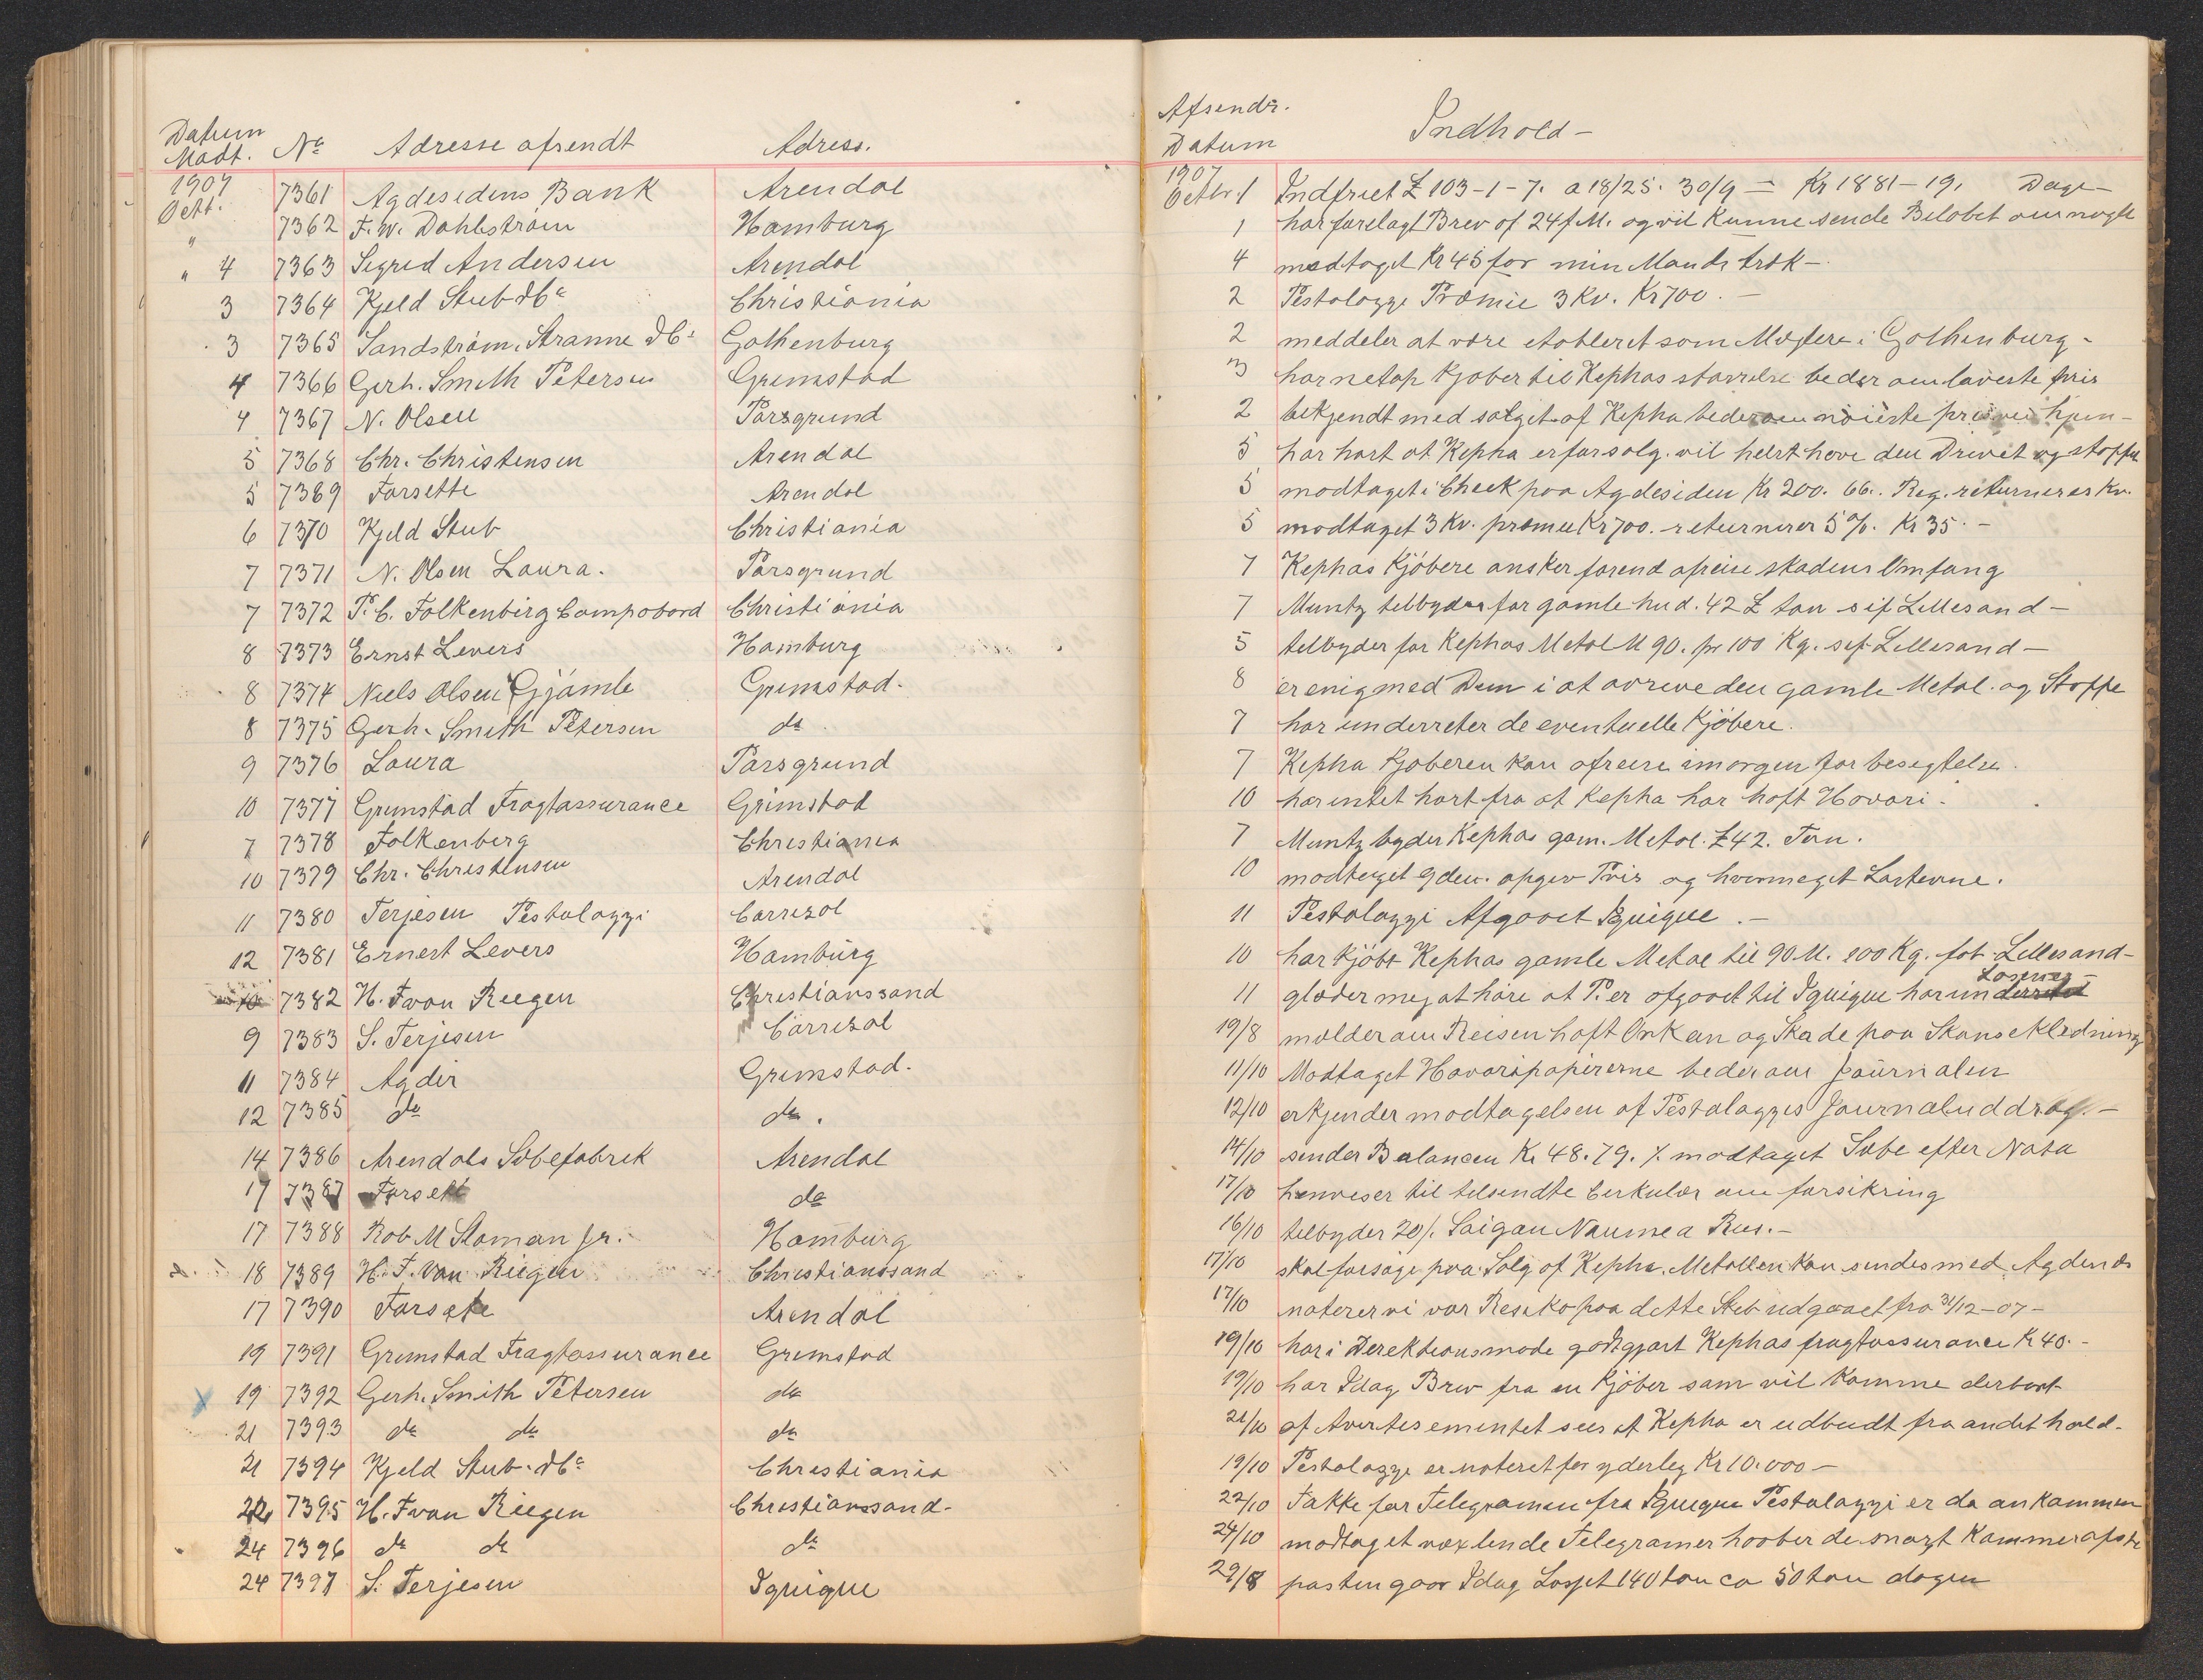 Datum Modt. No Adresse afsendt Adress.
1907 Octt. 7361 Agdesidens Bank Arendal
" 7362 F. W. Dahlstrøm Hamburg
" 4 7363 Sigrid Andersen Arendal
3 7364 Kjeld Stub & Co Christiania
3 7365 Sandstrøm, Stranne & Co Gothenburg
4 7366 Gerh. Smith Petersen Grimstad
4 7367 N. Olsen Porsgrund
5 7368 Chr. Christensen Arendal
5 7369 Forsette Arendal
6 7370 Kjeld Stub Christiania
7 7371 N. Olsen Laura. Porsgrund
7 7372 P. C. Folkenbirg Campobord Christiania
8 7373 Ernst Levers Hamburg
8 7374 Niels Olsen Gjømle Grimstad.
8 7375 Gerh. Smith Petersen do
9 7376 Laura Porsgrund
10 7377 Grimstad Fragtassurance Grimstad
7 7378 Folkenberg Christiania
10 7379 Chr. Christensen Arendal
11 7380 Terjesen Pestalozzi Carrizal
12 7381 Ernest Levers Hamburg
10 7382 H. F van Riegen Christianssand
9 7383 S. Terjesen Carrizal
11 7384 Agder Grimstad.
12 7385 do do.
14 7386 Arendals Sæbefabrik Arendal
17 7387 Forsett do
17 7388 Rob M Sloman Jr. Hamburg
18 7389 H. F. van Riegen Christianssand
17 7390 Forsete Arendal
19 7391 Grimstad Fragtassurance Grimstad
x 19 7392 Gerh. Smith Petersen do
21 7393 do do do
21 7394 Kjeld Stub & Co Christiania
22 7395 H. F van Riegen Christianssand-
24 7396 do do do
24 7397 S. Terjesen Iquique
Afsendr. Datum Indhold -
1907 Octbr. 1 Indfriet £ 103-1-7. a 18/25. 30/9 = Kr 1881-19. Dage-
1 har forelagt Brev af 24 f.M. og vil kunne sende Beløbet om nogle
4 modtaget Kr 45 for min Mands træk-
2 Pestalozzi Præmie 3 Kv. Kr 700.-
2 meddeler at være etableret som Mæglere i Gothenburg-
3 har netop Kjøber til Kephas størrelse beder om laveste pris
2 bekjendt med salget af Kepha beder om nøieste pris
5 har hørt at Kepha er for salg. vil helst have den Drivet og stoppe
5 modtaget i Check paa Agdesiden Kr 200. 66. Reg. returneres kv.
5 modtaget 3 Kv. præmie Kr 700. returnerer 5%. Kr 35.-
7 Kephas Kjøbere ønsker førend afreise skadens Omfang
7 Muntz tilbyder for gamle hud. 42 £ ton sif Lillesand-
5 tilbyder for Kephas Metal M 90. pr 100 Kg. sif Lillesand-
8 er enig med Dem i at avrive den gamle Metal. og Stoppe
7 har underreter de eventuelle Kjøbere.
7 Kepha Kjøberen kan afreise imorgen for besigtelse.
10 har intet hørt fra at Kepha har haft Havari.
7 Muntz byder Kephas gam. Metal. £42. Ton.
10 modtaget 9den. opgev Pris og hvormeget Lasterne.
11 Pestalozzi Afgaaet Iquique.-
10 har kjøbt Kephas gamle Metal til 90 M. 100 Kg. fob Lillesand-
11 glæder meg at høre at P. er afgaaet til Iquique har un
19/8 mælder om Reisen haft Orkan og Skade paa Skanseklædning
11/10 Modtaget Havaripapirerne beder om Journalen
12/10 erkjender modtagelsen af Pestalozzis Journaluddrag.-
14/10 sender Balancen Kr 48.79. % modtaget Sæbe efter Nota
17/10 henviser til tilsendte Cirkulær om forsikring
16/10 tilbyder 20/. Saigon Naumea Rus.-
17/10 skal forsøge paa Salg af Kepha. Metallen kan sendes med Agdends
17/10 noterer vi vor Resiko paa dette Skib udgaaet fra 31/12-07-
19/10 har i Derektionsmøde godtgjort Kephas fragtassurance K 40.-
19/10 har Idag Brev fra en Kjøber som vil komme derbort
21/10 af Avertesementet sees at Kepha er udbudt fra andet hold.
19/10 Pestalozzi er noteret for yderleg Kr 10.000-
22/10 Takke for Telegramen fra Iquique Pestalozzi er da ankommen
24/10 modtaget vexlende Telegramer haaber de snart kommer
29/8 pasten gaar Idag Losset 140 ton ca 50 ton dagen